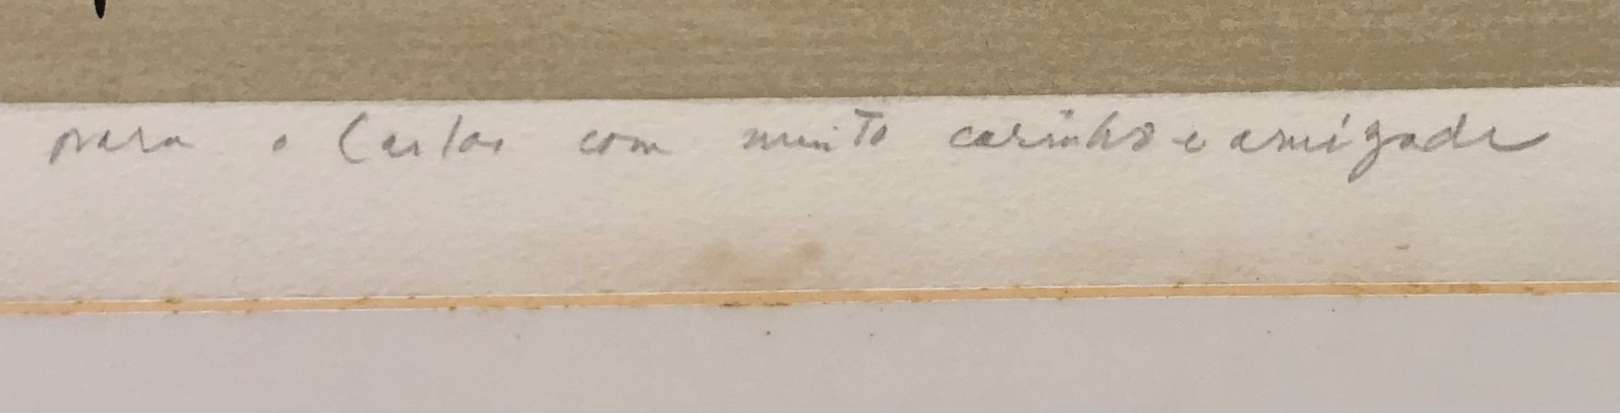 para o Carlos com muito carinho e amizade